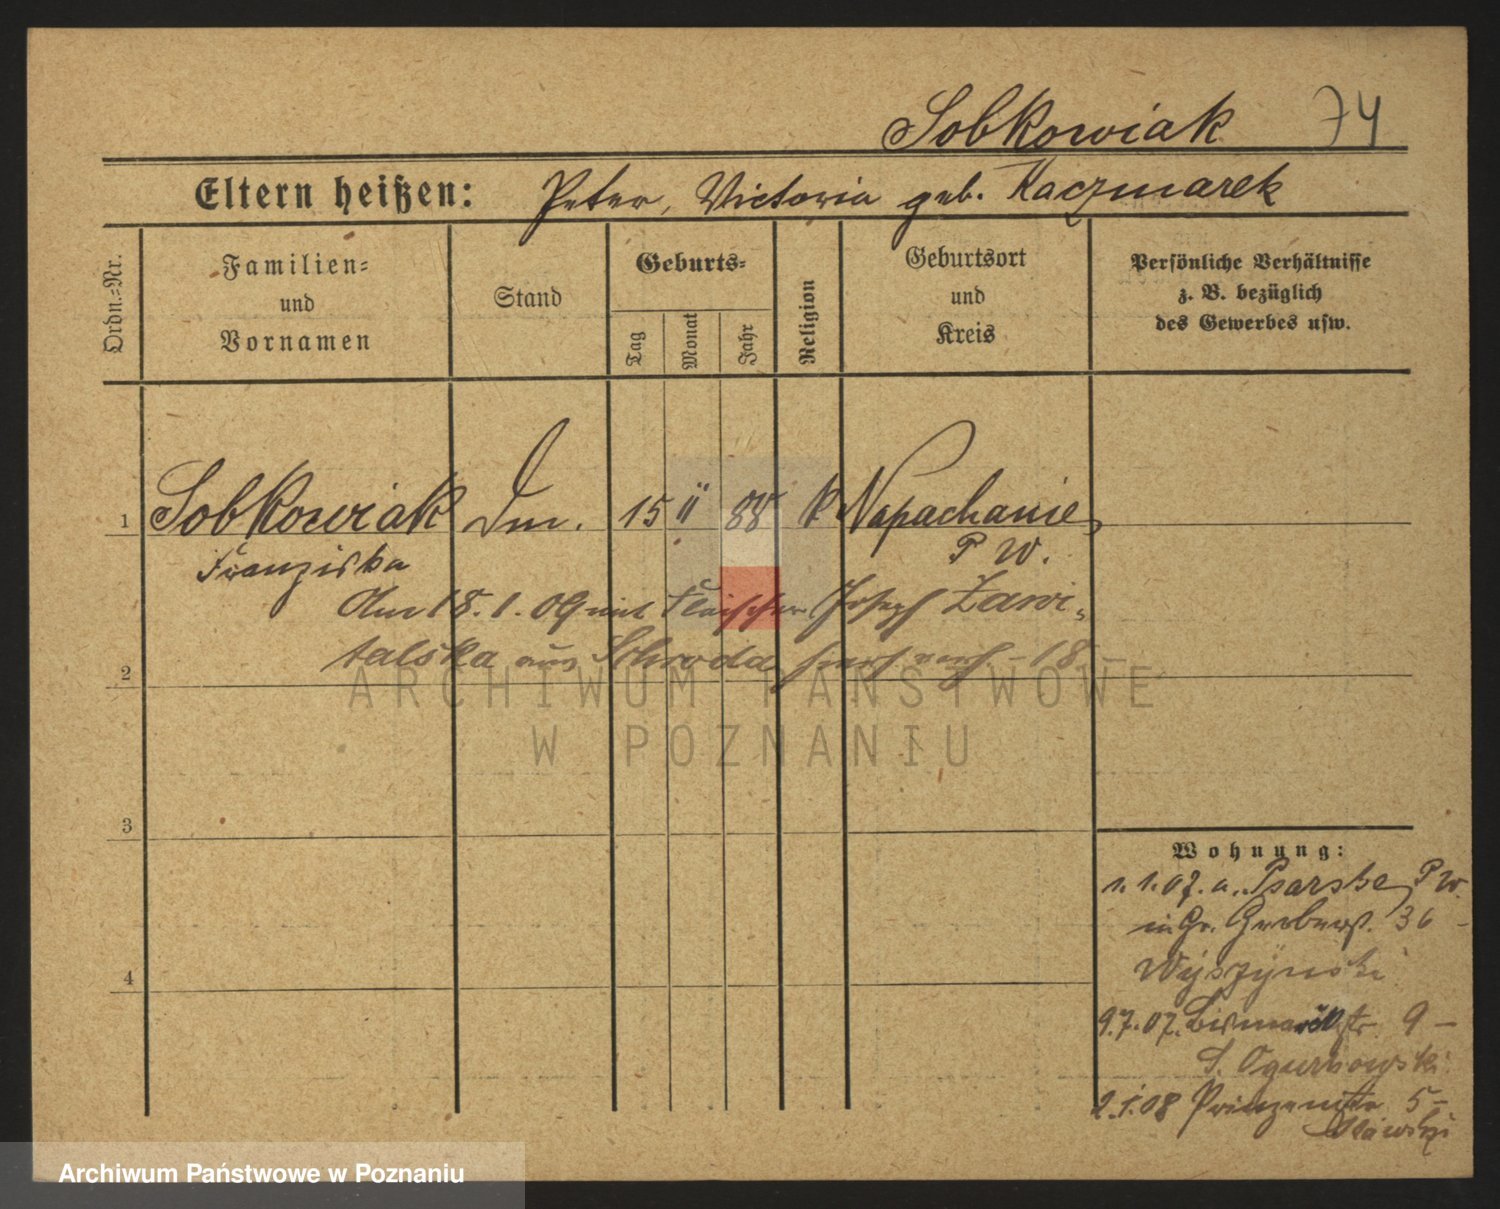 Sobkowiak 74
Eltern heißen: Peter, Victoria geb. Kaczmarek
Ordn.-Nr.
Familien-
und
Vornamen
Stand
Geburts-
Tag
Monat
Jahr
Religion
Geburtsort
und
Kreis
Persönliche Verhältnisse
z. B. bezüglich
des Gewerbes usw.
1 Sobkowiak 15 88 k Napachanie,
Franziska P W.
Am 18. 1. 09 mit Fleischer Joseph Zawi-
talska aus Schroda
2
3
4
ARCHIWUM PAŃSTWOWE
W POZNANIU
Wohnung:
1. 1. 07. a. Psarskie, P W.
in Gr. Gerberst. 36
Wyszynski
9.7.07. Bismarckstr. 9 —
S. Ogurkowski
2.1.08 Prinzenstr. 5 —
Archiwum Państwowe w Poznaniu